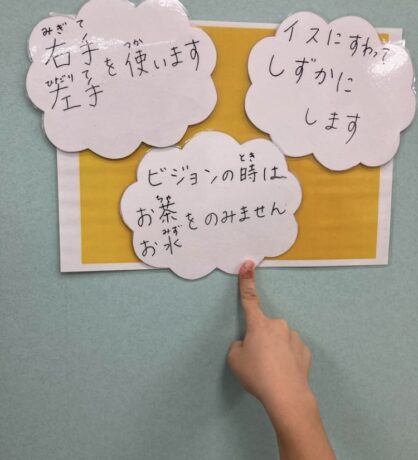 みぎて
右手を使います
つか
ひだりて
左手
イスにすわって
しずかに
します
とき
ビジョンの時は
ちゃ
お茶をのみません
みず
お水